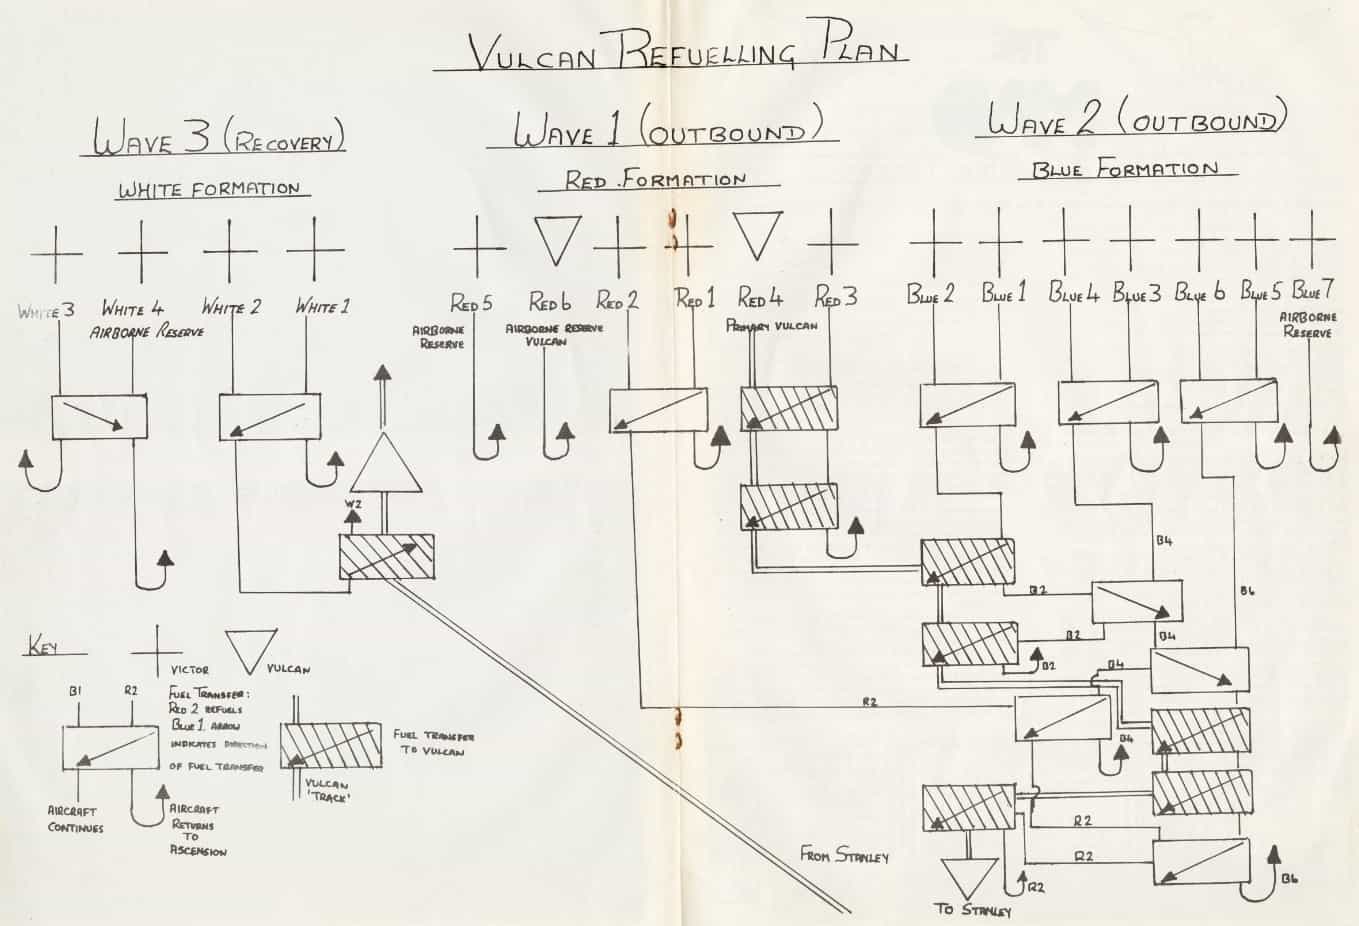 VULCAN REFUELLING PLAN
WAVE 3 (RECOVERY)
WHITE FORMATION
WAVE 1 (OUTBOUND)
RED FORMATION
WAVE 2 (OUTBOUND)
BLUE FORMATION
WHITE 3
WHITE 4
AIRBORNE RESERVE
WHITE 2
WHITE 1
RED 5
AIRBORNE
RESERVE
RED 6
AIRBORNE RESERVE
VULCAN
RED 2
RED 1
RED 4
PRIMARY VULCAN
RED 3
BLUE 2
BLUE 1
BLUE 4
BLUE 3
BLUE 6
BLUE 5
BLUE 7
AIRBORNE
RESERVE
W2
B4
B2
B6
B2
B4
B2
B4
R2
B4
R2
R2
R2
B6
FROM STANLEY
TO STANLEY
KEY
VICTOR
VULCAN
B1
R2
FUEL TRANSFER:
RED 2 REFUELS
BLUE 1. ARROW
INDICATES DIRECTION
OF FUEL TRANSFER
AIRCRAFT
CONTINUES
AIRCRAFT
RETURNS
TO
ASCENSION
FUEL TRANSFER
TO VULCAN
VULCAN
'TRACK'